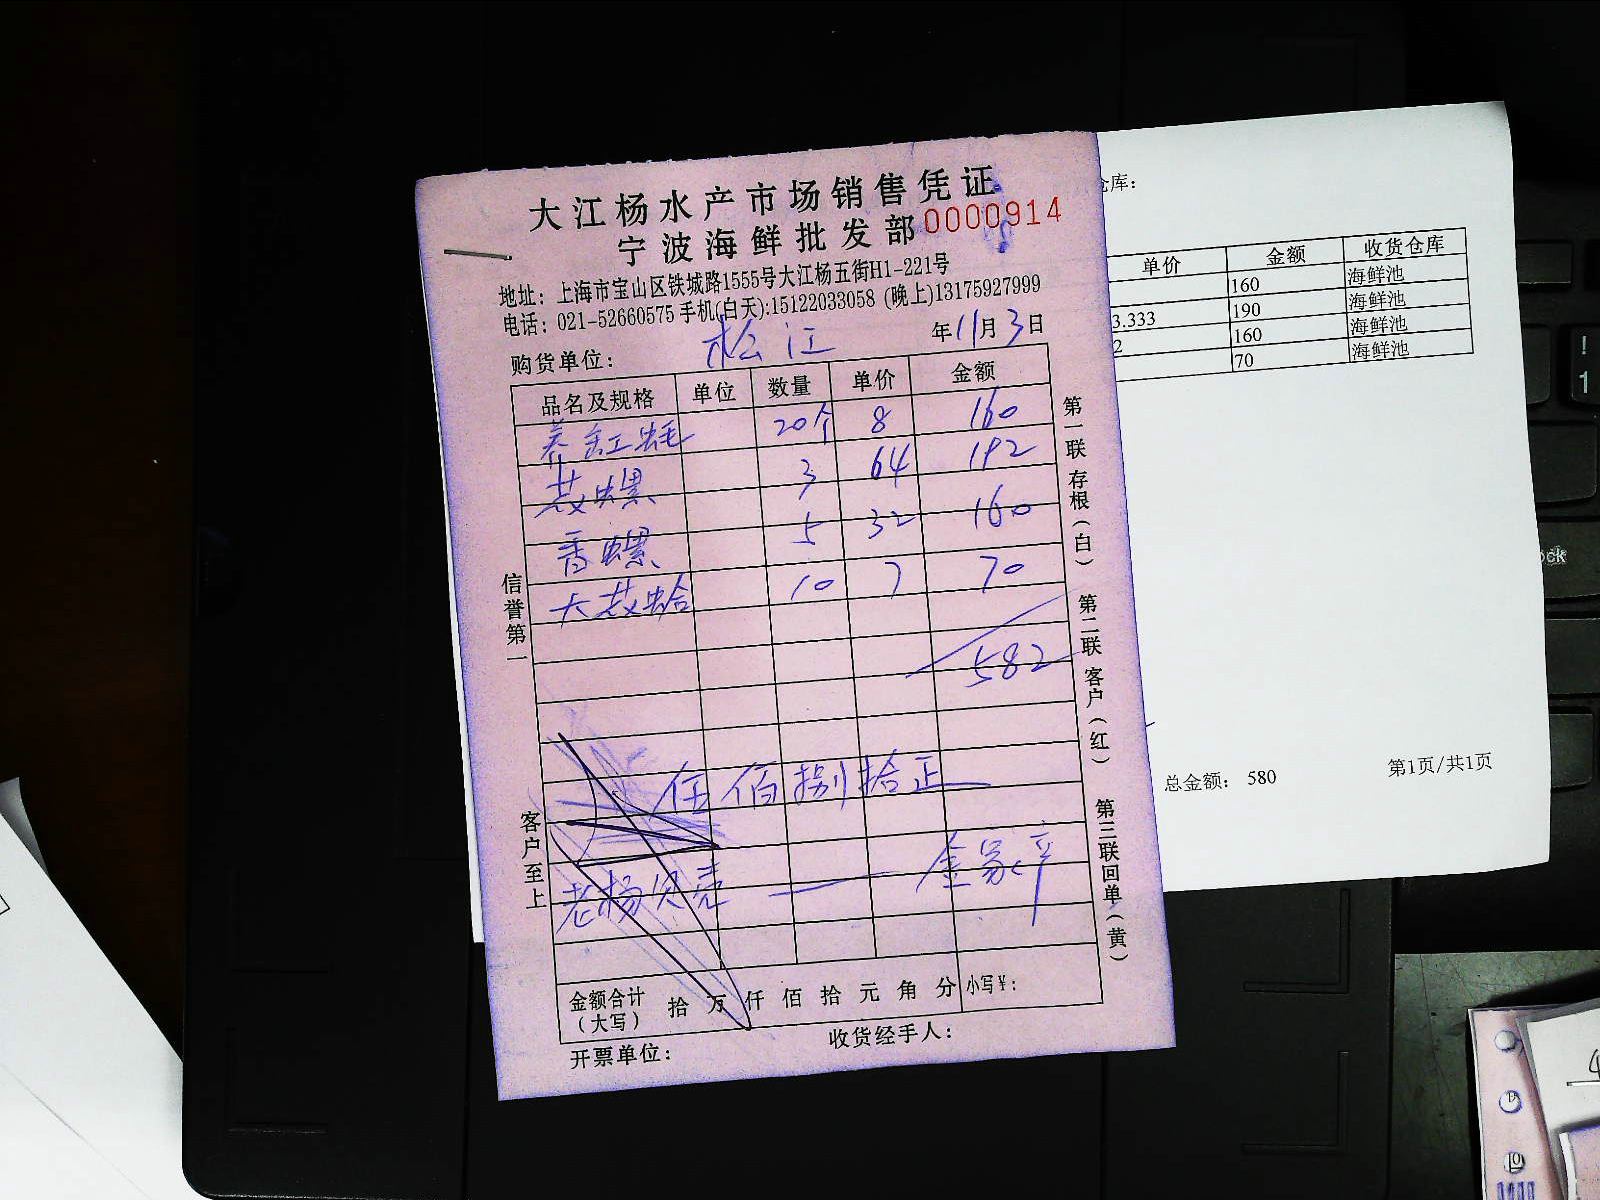 大江杨水产市场销售凭证
宁波海鲜批发部 0000914
地址：上海市宝山区铁城路1555号大江杨五街H1-221号
电话：021-52660575 手机(白天):15122033058 (晚上)13175927999
购货单位： 松江 年11月3日
品名及规格 单位 数量 单价 金额
20个 8 160
花螺 3 64 192
香螺 5 32 160
大花蛤 10 7 70
582
伍佰捌拾正
老杨贝壳
金额合计（大写） 拾 万 仟 佰 拾 元 角 分 小写￥：
开票单位： 收货经手人：
信誉第一 客户至上
第一联存根（白） 第二联客户（红） 第三联回单（黄）
仓库：
单价 金额 收货仓库
160 海鲜池
3.333 190 海鲜池
2 160 海鲜池
70 海鲜池
总金额： 580 第1页/共1页